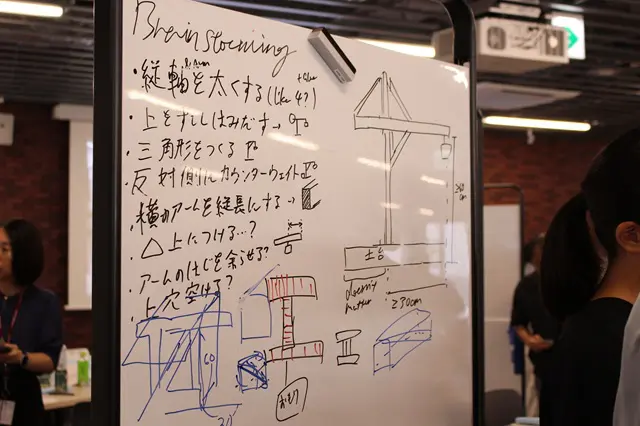 Brainstorming
・縦軸を太くする(like 4?)
・上を少しはみだす→
・三角形をつくる
・反対側にカウンターウェイト
・横のアームを縦長にする→
・△上につける…?
・アームのはじを余らせる?
・上穴空ける?
土台
doesn't matter
≥30cm
60
20
おもり